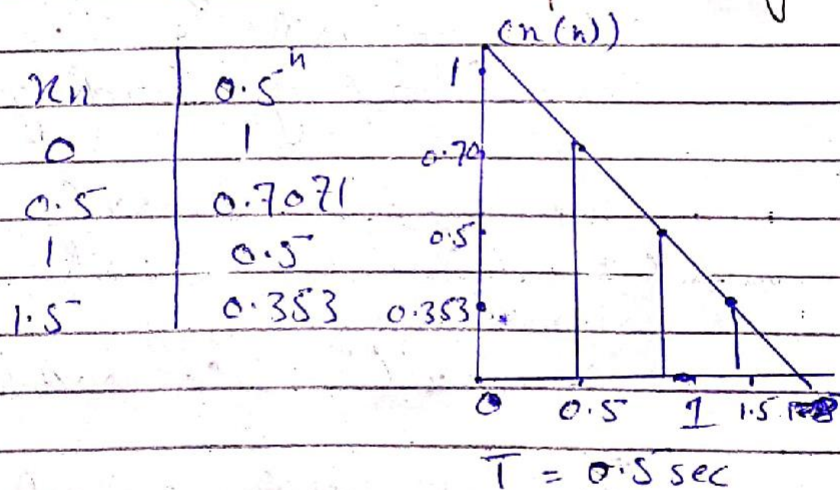 (n(n))
xn | 0.5^n
0 | 1
0.5 | 0.7071
1 | 0.5
1.5 | 0.353
1
0.70
0.5
0.353
0 0.5 1 1.5
T = 0.5 sec